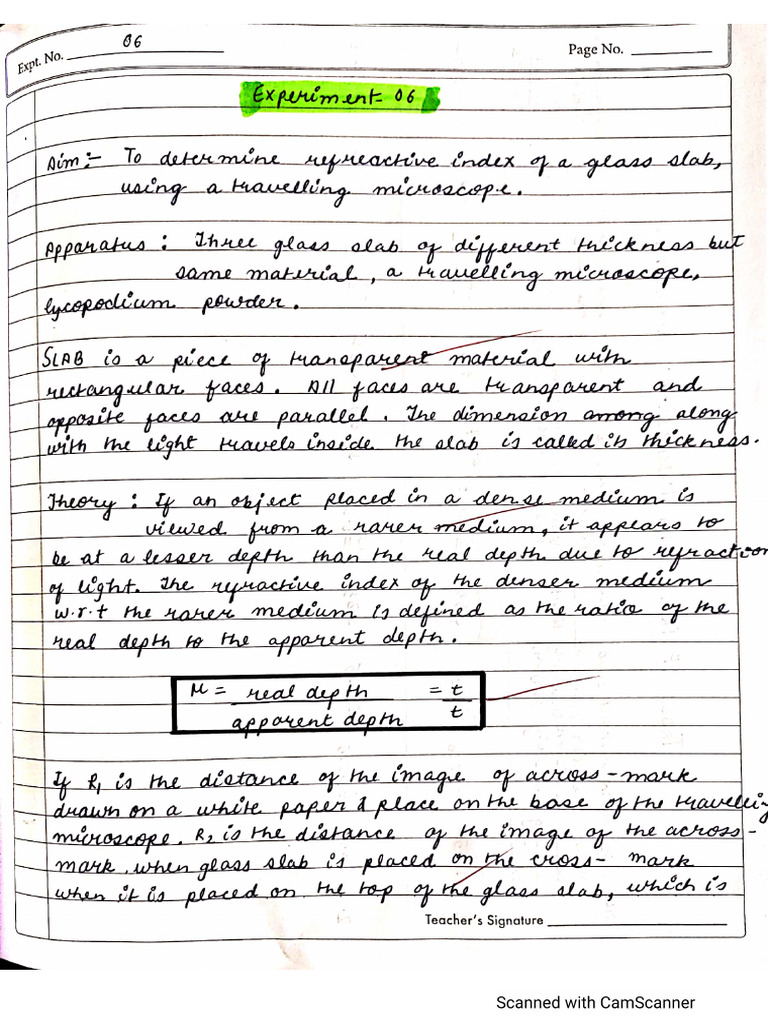 Expt. No. 06
Page No.
Experiment- 06
Aim:- To determine refreactive index of a glass slab,
using a travelling microscope.
Apparatus : Three glass slab of different thickness but
same material, a travelling microscope,
lycopodium powder.
SLAB is a piece of transparent material with
rectangular faces. All faces are transparent and
opposite faces are parallel. The dimension among along
with the light travels inside the slab is called its thickness.
Theory : If an object placed in a dense medium is
viewed from a rarer medium, it appears to
be at a lesser depth than the real depth due to refraction
of light. The refractive index of the denser medium
w.r.t the rarer medium is defined as the ratio of the
real depth to the apparent depth.
μ = real depth = t
apparent depth t
If R1 is the distance of the image of across-mark
drawn on a white paper & place on the base of the travelling
microscope. R2 is the distance of the image of the across-
mark, when glass slab is placed on the cross- mark
when it is placed on the top of the glass slab, which is
Teacher's Signature
Scanned with CamScanner